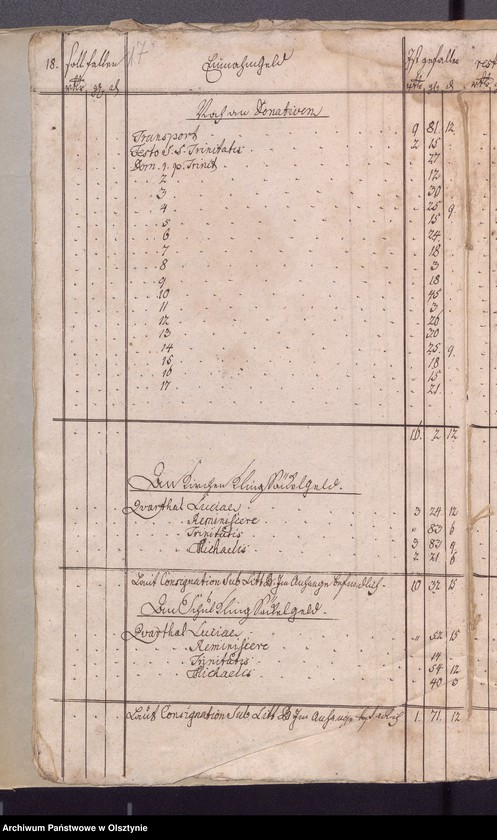 18. soll fallen 17 Einnahm Geld Ist gefallen rest
rtlr. gr. ch rtlr. gr. ch rtlr
Noch an Donativen
Transport 9 81 12
Festo S. S. Trinitatis 2 15
Dom. 1. p. Trinit 27
2 12
3 30
4 25 9
5 15
6 24
7 18
8 3
9 18
10 45
11 3
12 20
13 30
14 25 9
15 18
16 15
17 21
16. 2 12
An Kirchen Kling Säckelgeld.
Qvarthal Luciae 3 24 12
Reminiscere " 83 6
Trinitatis 3 83 9
Michaelis 2 21 6
Laut Consignation Sub Litt. B. Im Anfange befindlich 10 32 15
An Schul Kling Säckelgeld.
Qvarthal Luciae " 52 15
Reminiscere 14
Trinitatis 54 12
Michaelis 40 3
Laut Consignation Sub Litt B Im Anfange 1. 71. 12
Archiwum Państwowe w Olsztynie